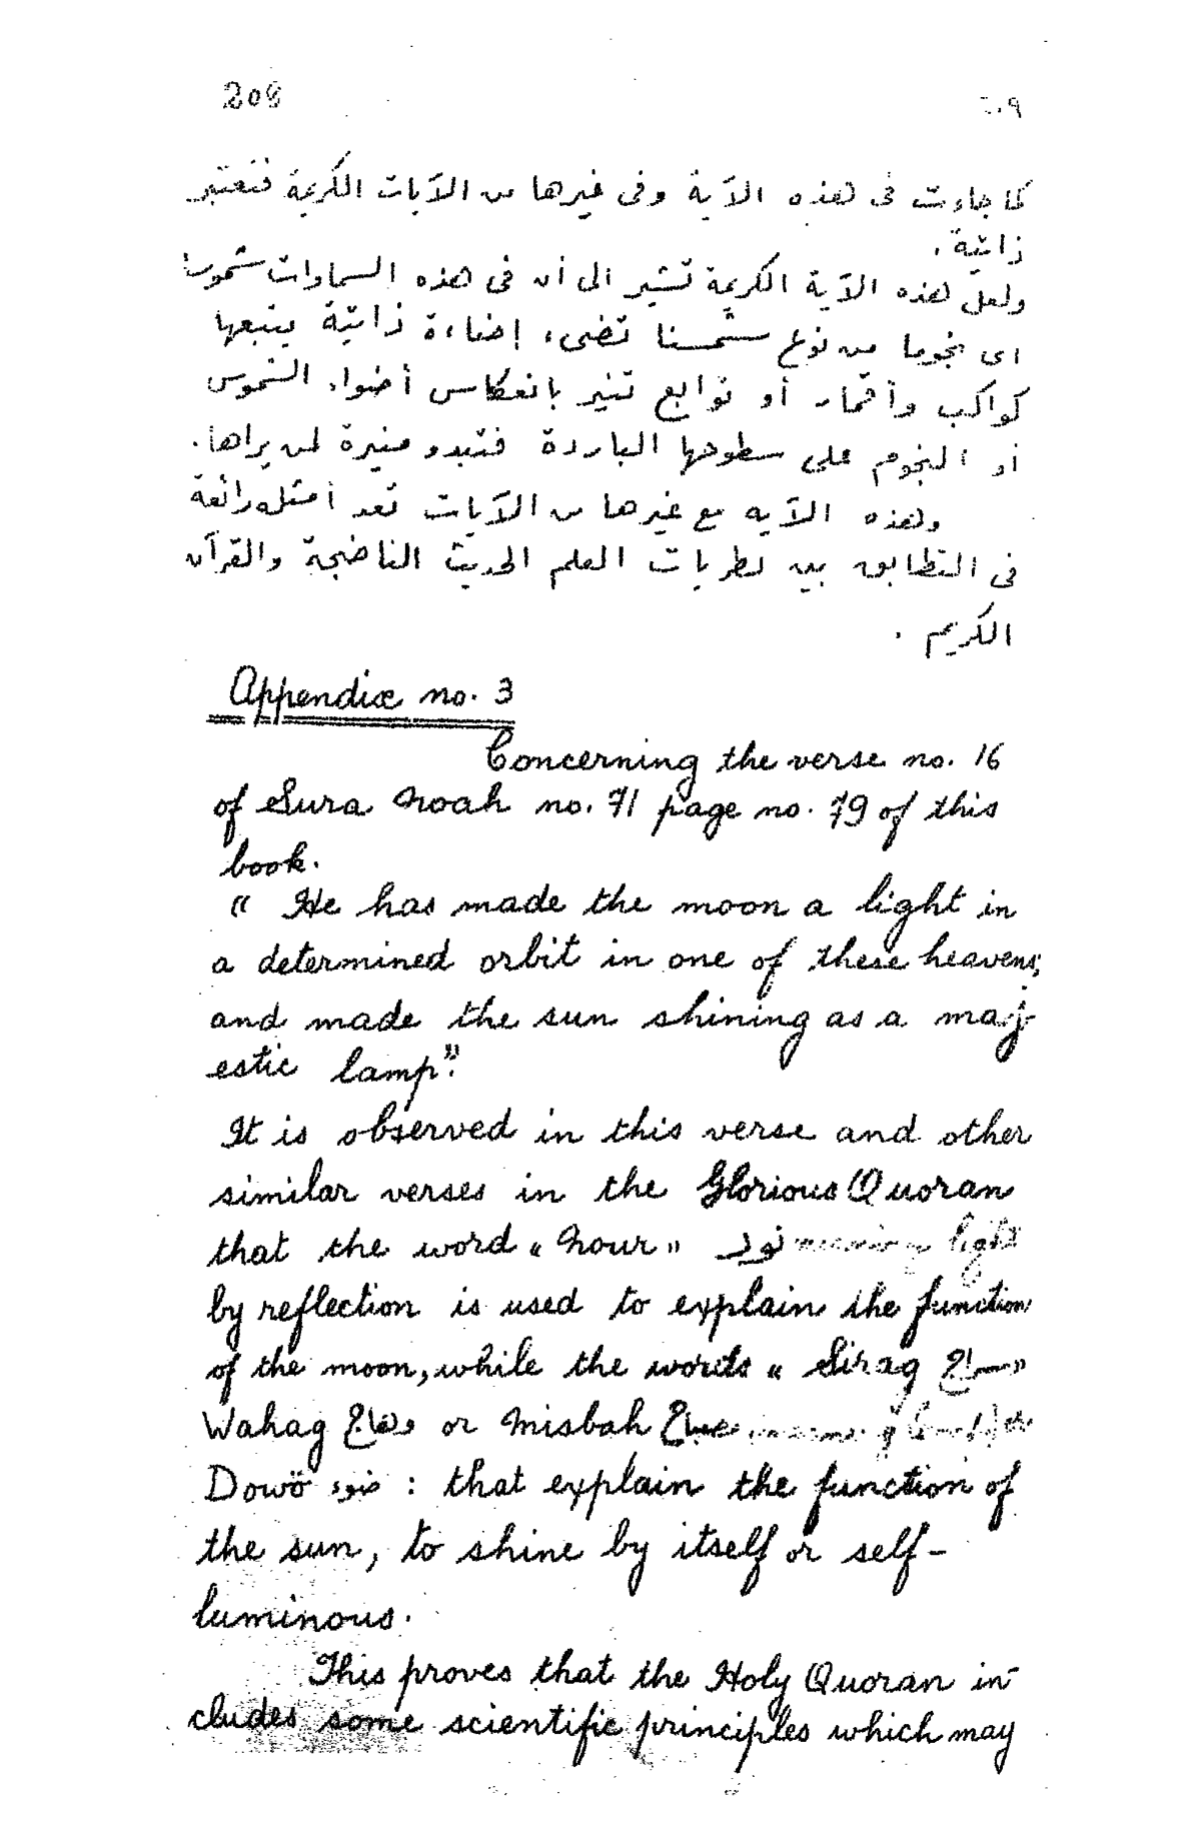 208
٢٠٩
كما جاءت فى هذه الآية وفى غيرها من الآيات الكريمة فتعتبر
ذاتية.
ولعل هذه الآية الكريمة تشير الى أن فى هذه السماوات شموسا
اى نجوما من نوع شمسنا تضىء إضاءة ذاتية يتبعها
كواكب وأقمار أو توابع تنير بانعكاس أضواء الشموس
أو النجوم على سطوحها الباردة فتبدو منيرة لمن يراها.
وهذه الآيه مع غيرها من الآيات تعد أمثله رائعة
فى التطابق بين نظريات العلم الحديث الناضجة والقرآن
الكريم .
Appendix no. 3
Concerning the verse no. 16
of Sura Noah no. 71 page no. 79 of this
book.
" He has made the moon a light in
a determined orbit in one of these heavens;
and made the sun shining as a maj-
estic lamp".
It is observed in this verse and other
similar verses in the Glorious Quoran
that the word « Nour » نور meaning light
by reflection is used to explain the function
of the moon, while the words « Sirag سراج »
Wahag وهاج or Misbah مصباح
Dowö ضوء : that explain the function of
the sun, to shine by itself or self-
luminous.
This proves that the Holy Quoran in-
cludes some scientific principles which may